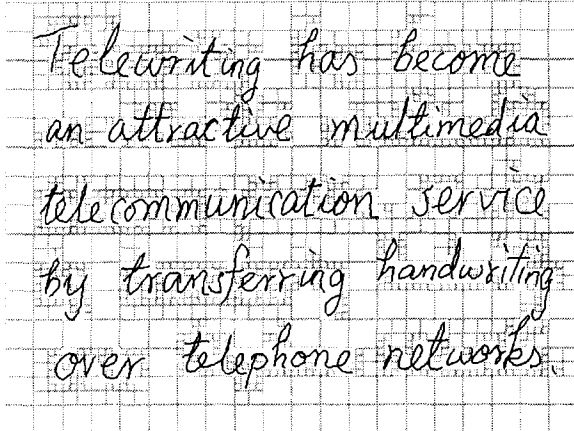 Telewriting has become
an attractive multimedia
telecommunication service
by transferring handwriting
over telephone networks.